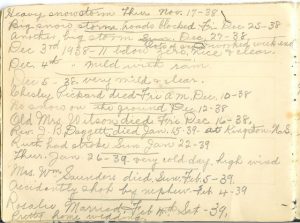 Heavy snowstorm Thur. Nov. 17-38.
Big snow storm, roads blocked Fri. Dec 25-38
Another big storm Dec. 27-38.
Dec 3rd 1938-11 below zero, & clear.
Dec. 4th - mild with rain
Dec 5-38. very mild & clear.
Wesley Pickard died Fri A.M. Dec. 10-38
No snow on the ground Dec 12-38
Old Mrs. Wilson died Fri Dec 16-38.
Rev. J. B. Daggett died Jan. 15-39. at Kingston N.S.
Ruth had stroke Sun. Jan 22-39
Thur. Jan 26-39 very cold day, high wind
Mrs. Wm Saunders died Sun. Feb. 5-39.
accidently shot by nephew Feb 4-39
Rosalie Married Feb 4th Sat-39.